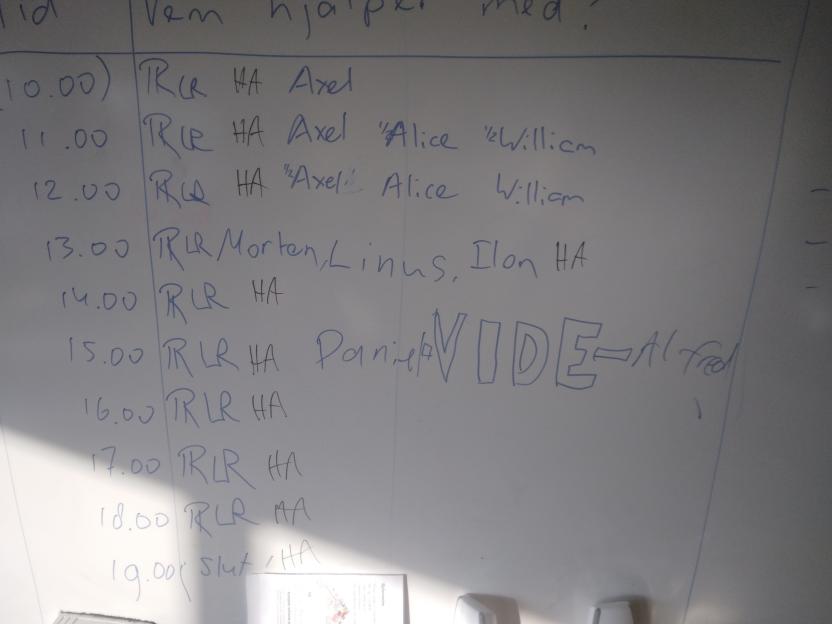 Tid Vem hjälper med?
(10.00) RLR HA Axel
11.00 RLR HA Axel ½Alice ½William
12.00 RLR HA ½Axel Alice William
13.00 RLR Morten, Linus, Ilon HA
14.00 RLR HA
15.00 RLR HA Daniel VIDE-Alfred
16.00 RLR HA
17.00 RLR HA
18.00 RLR HA
19.00( Slut, HA